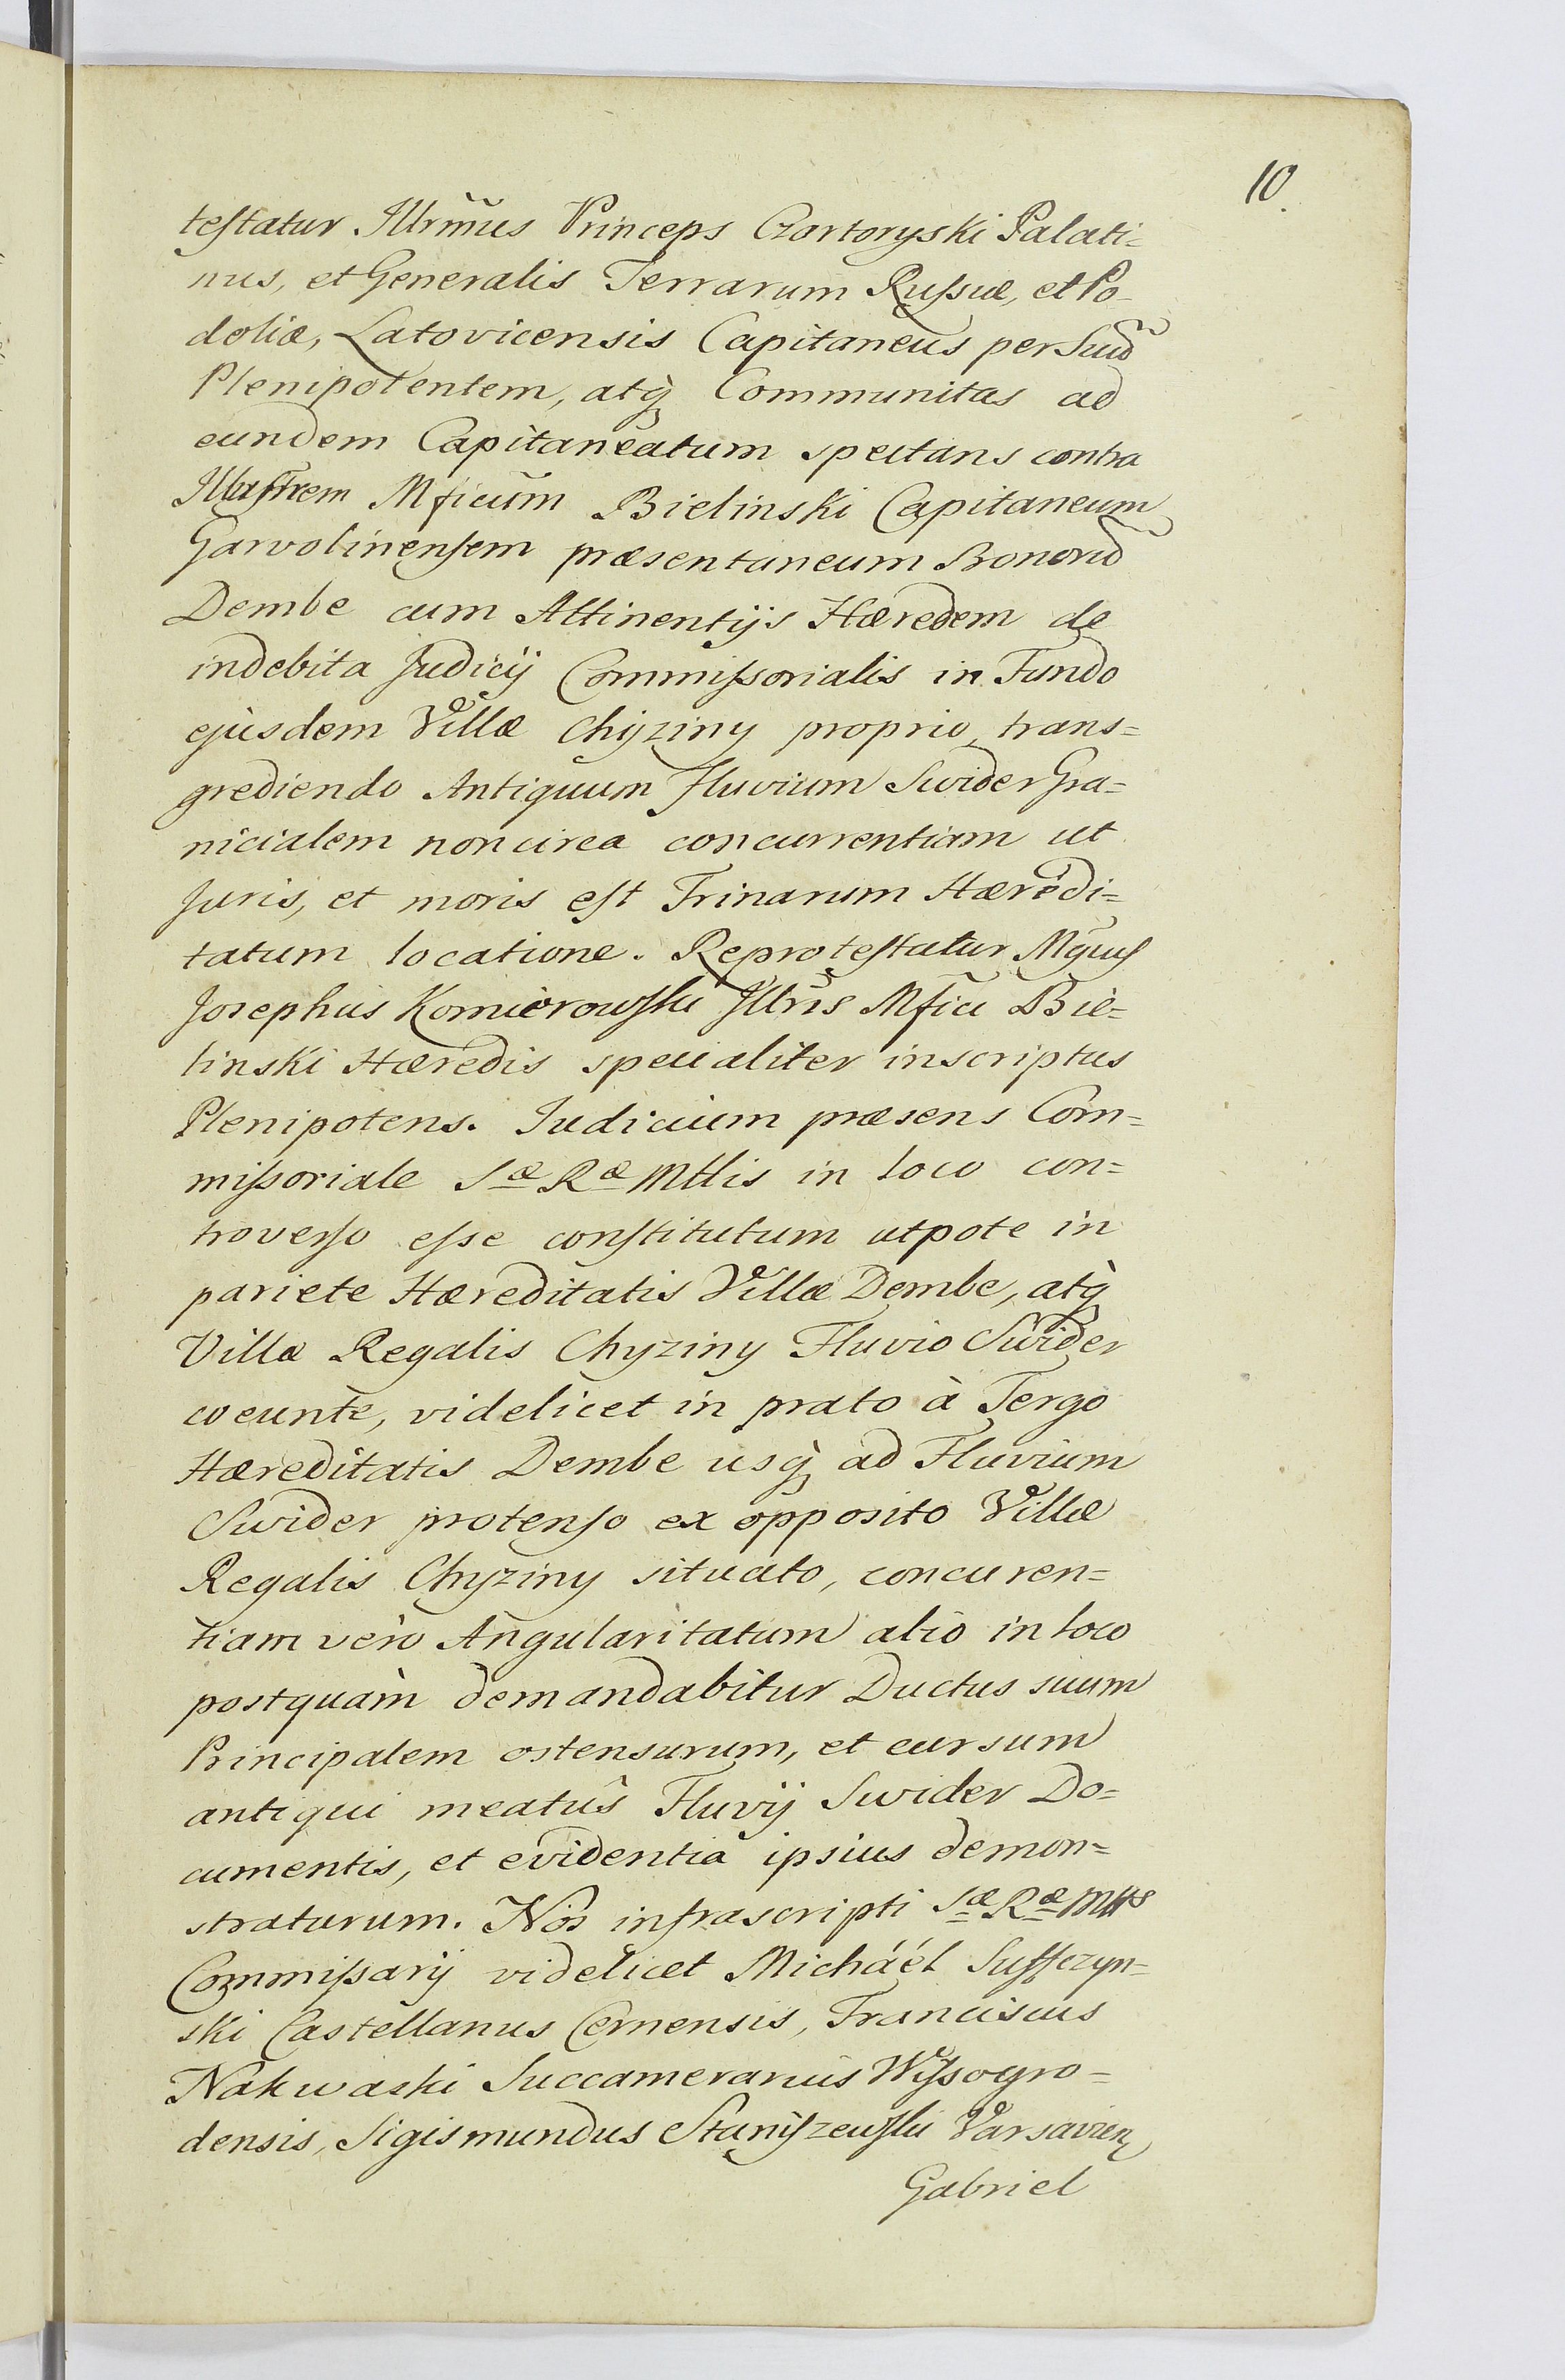 10.
testatur Illrm̃us Princeps Czartoryski Palati=
nus, et Generalis Terrarum Russiæ, et Po-
doliæ, Latovicensis Capitaneus per Suũ
Plenipotentem, atq̀ Communitas ad
eundem Capitaneatum spectans contra
Illustrem Mficũm Bielinski Capitaneum
Garvolinensem præsentaneum Bonorũ
Dembe cum Attinentijs Hæredem de
indebita Judicij Commissorialis in Fundo
ejusdem Villæ Chyziny proprio, trans=
grediendo Antiquum Fluvium Swider Gra=
nicialem non circa concurrentiam ut
Juris, et moris est Trinarum Hæredi=
tatum locatione. Reprotestatur Mgũus
Josephus Komierowski Illrĩs Mfici Bie=
linski Hæredis specialiter inscriptus
Plenipotens. Judicium præsens Com=
missoriale Sæ Ræ Mttis in loco con=
troverso esse constitutum utpote in
pariete Hæreditatis Villæ Dembe, atq̀
Villa Regalis Chyziny Fluvio Swider
coeunte, videlicet in prato à Tergo
Hæreditatis Dembe usq̀ ad Fluvium
Swider protenso ex opposito Villæ
Regalis Chyziny situato, concuren=
tiam verò Angularitatum alio in loco
postquàm demandabitur Ductus suum
Principalem ostensurum, et cursum
antiqui meatûs Fluvij Swider Do=
cumentis, et evidentia ipsius demon=
straturum. Nos infrascripti Sæ Ræ Mttis
Commissarij videlicet Michaél Suffczyn=
ski Castellanus Cernensis, Franciscus
Nakwaski Succamerarius Wyssogro=
densis, Sigismundus Staniszewski Varsavien
Gabriel